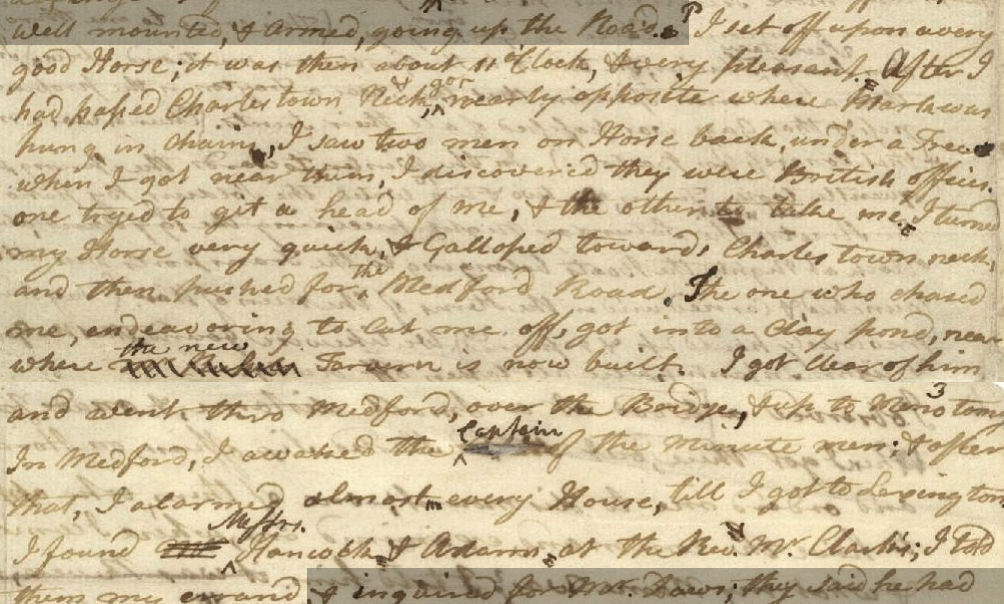 well mounted, & armed, going up the Road. I set off upon a very
good Horse; it was then about 11 o'Clock, & very pleasant. After I
had passed Charlestown Neck, & got nearly opposite where Mark was
hung in chains, I saw two men on Horse back, under a Tree.
when I got near them, I discovered they were British officer.
one tryed to git a head of me, & the other to take me. I turned
my Horse very quick, & Galloped towards Charlestown neck,
and then pushed for the Medford Road. The one who chased
me, endeavoring to Cut me off, got into a Clay pond, near
where the new Tavern is now built. I got clear of him,
and went thro Medford, over the Bridge, & up to Menotomy
In Medford, I awaked the Captain of the Minute men; & after
that, I alarmed almost every House, till I got to Lexington
I found Messrs. Hancock & Adams at the Rev. Mr. Clark's; I told
them my errand, & inquired for Mr. Daws; they said he had